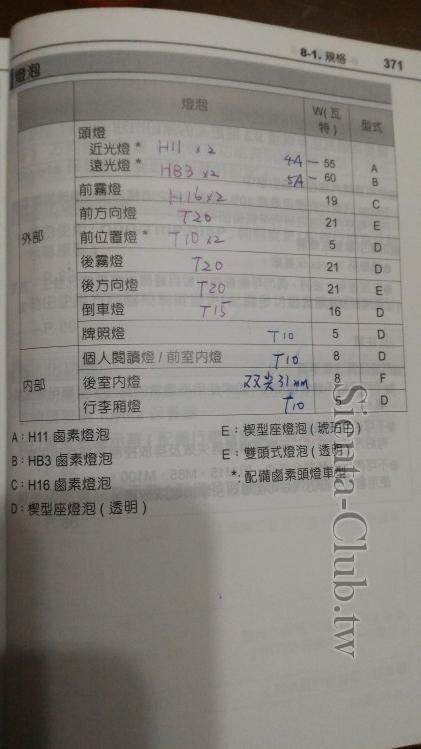 8-1. 規格 371
燈泡
燈泡 W(瓦特) 型式
外部
頭燈
近光燈* H11 x2 4A — 55 A
遠光燈* HB3 x2 5A — 60 B
前霧燈 H16x2 19 C
前方向燈 T20 21 E
前位置燈* T10 x2 5 D
後霧燈 T20 21 D
後方向燈 T20 21 E
倒車燈 T15 16 D
牌照燈 T10 5 D
內部
個人閱讀燈/前室內燈 T10 8 D
後室內燈 双尖31mm 8 F
行李廂燈 T10 5 D
A：H11 鹵素燈泡
B：HB3 鹵素燈泡
C：H16 鹵素燈泡
D：楔型座燈泡(透明)
E：楔型座燈泡(琥珀色)
E：雙頭式燈泡(透明)
*：配備鹵素頭燈車型
Sienta-Club.tw